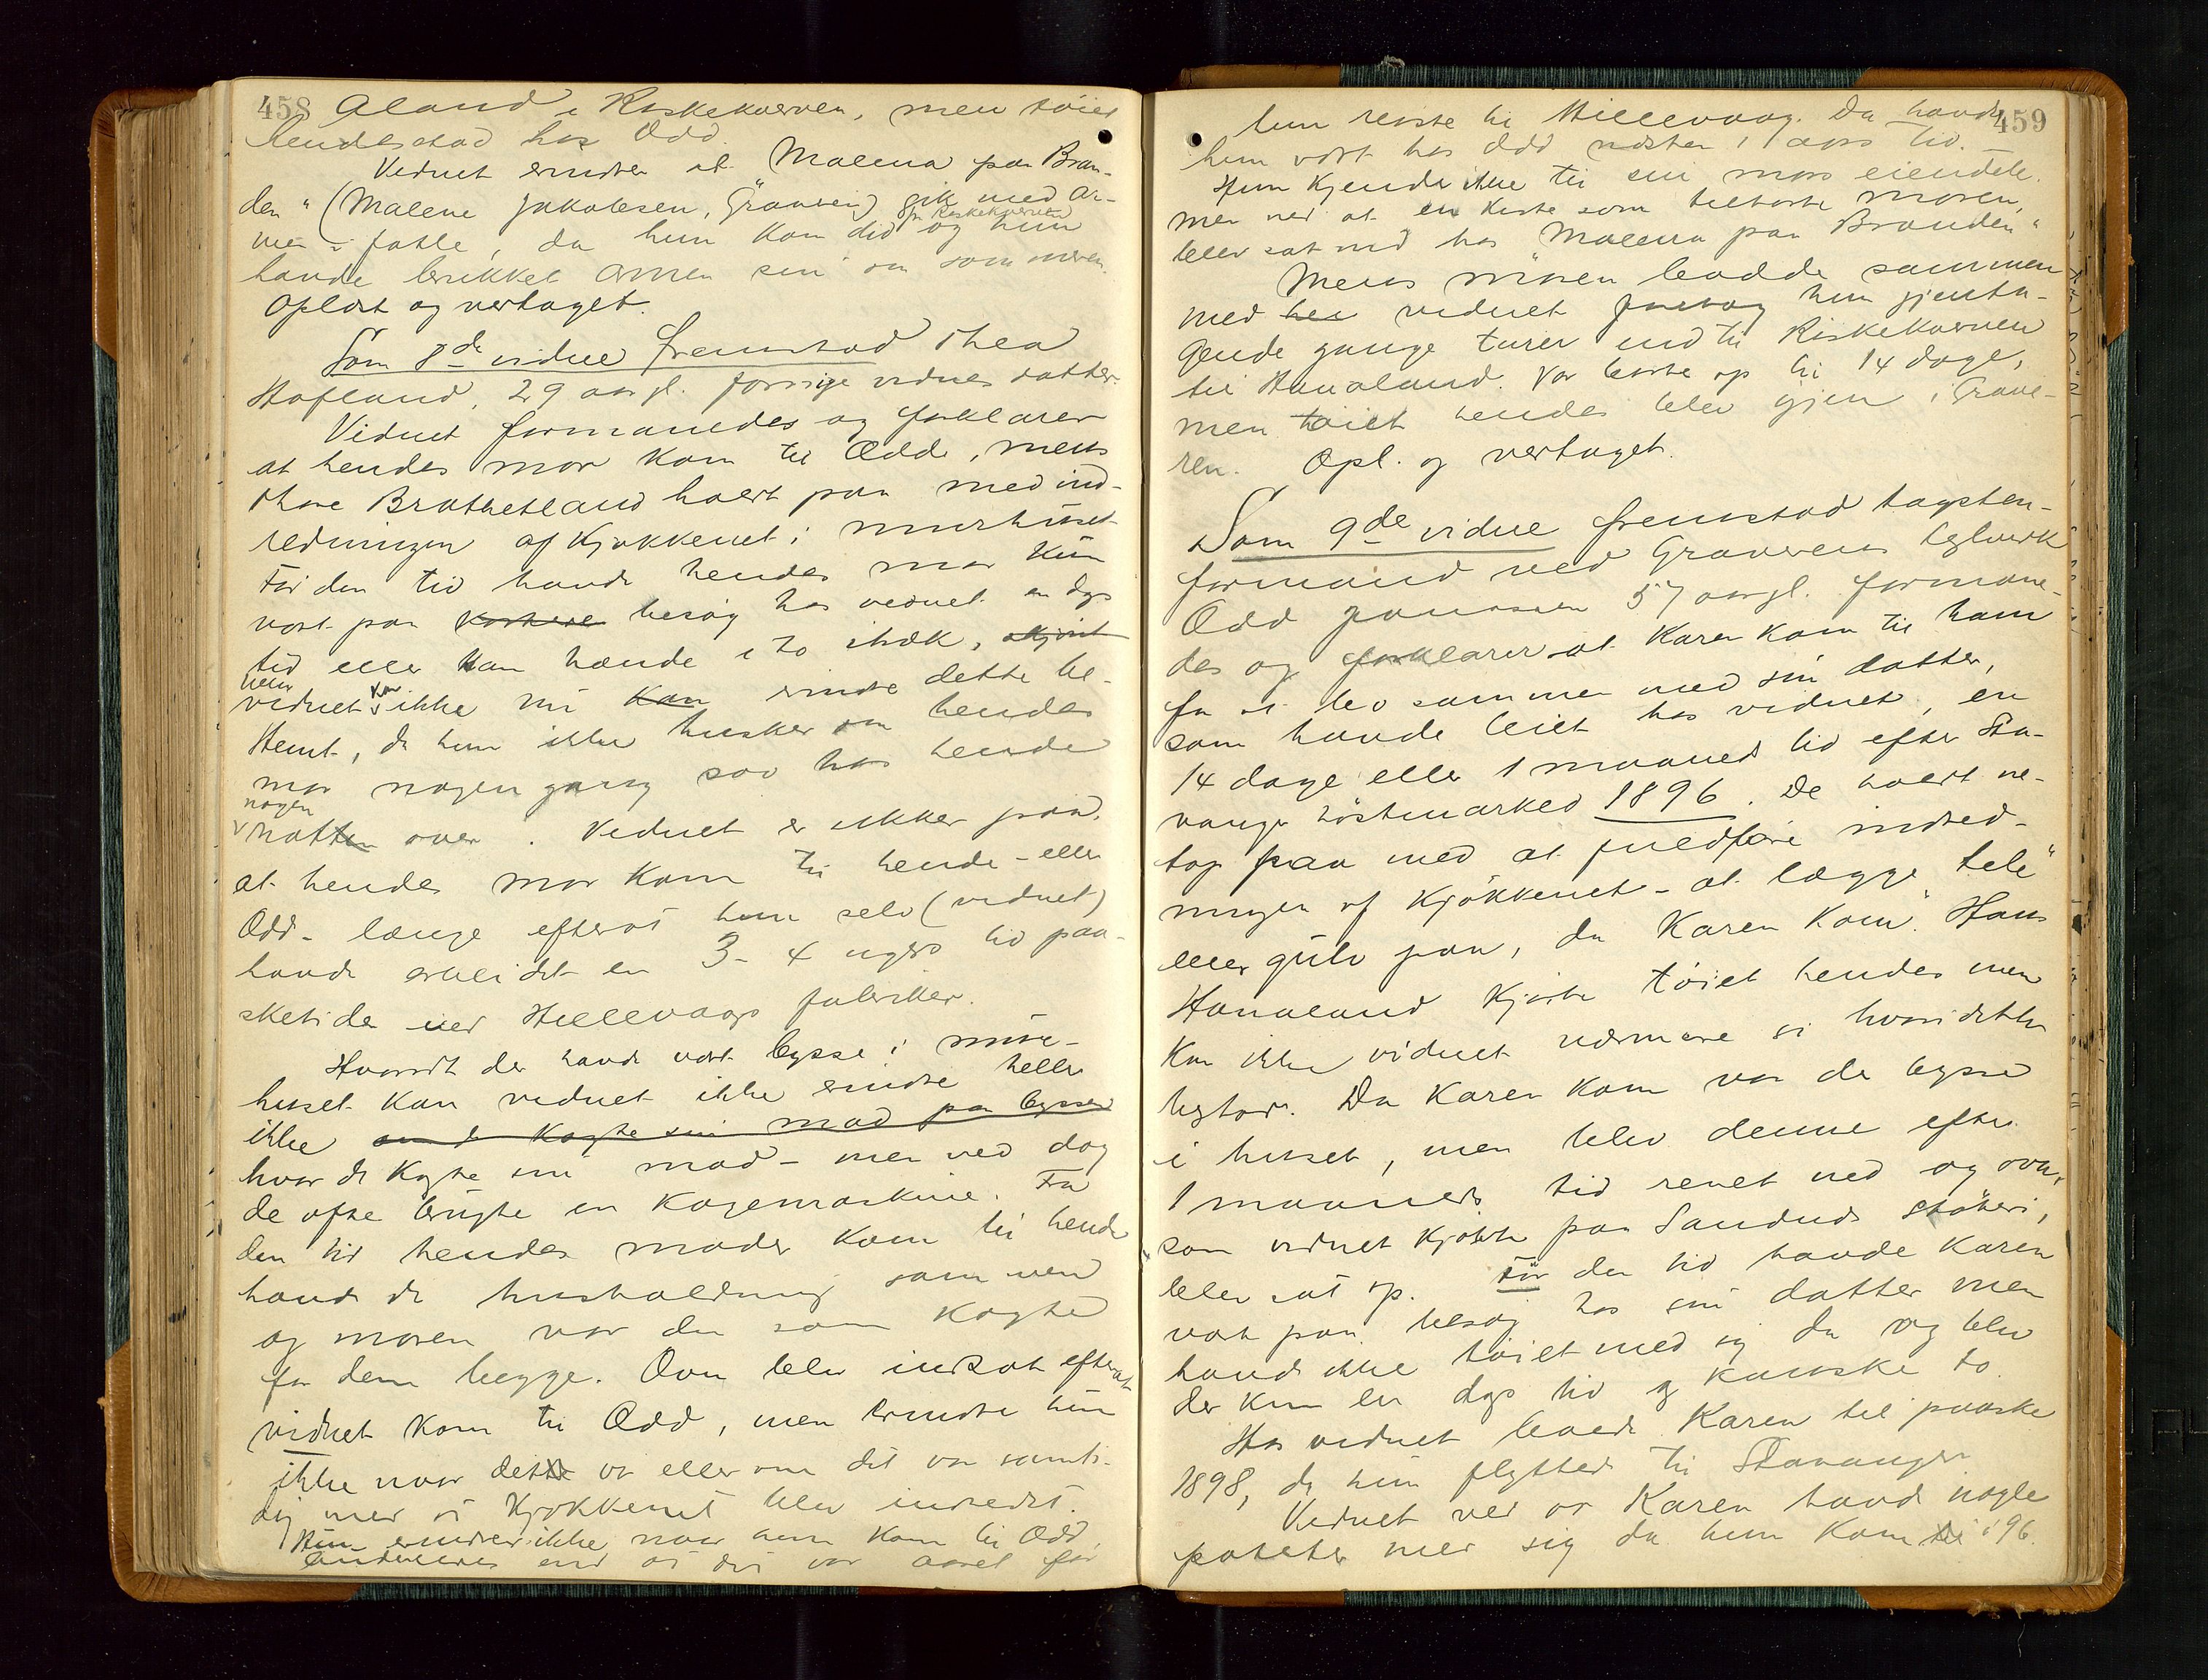 458 Aland i Riskekværven, men tøiet
hendes stod hos Odd.
Vidnet erindrer at "Malena paa Bran-
den" (Malene Jakobsen, Graaveren) gik med ar-
men i fatle, da hun kom did fra Riskekværven og hun
havde brukket armen sin om sommeren.
Oplæst og vedtaget.
Som 8de vidne fremstod Thea
Hafland, 29 aar gl. forrige vidnes datter.
Vidnet formanedes og forklarer
at hendes mor kom til Odd, mens
Thore Brathetland holdt paa med ind-
redningen af kjøkkenet i murhuset
Før den tid havde hendes mor kun
vært paa besøg hos vidnet en dags
tid eller kan hænde i to i træk,
vidnet kan ikke nu erindre dette be-
stemt, da hun ikke husker om hendes
mor nogen gang sov hos hende
nogen natt over. Vidnet er sikker paa,
at hendes mor kom til hende - eller
Odd - længe efterat hun selv (vidnet)
havde arbeidet en 3-4 ugers tid paa
ved Hillevaags fabriker.
Hvorvidt der havde vært bysse i mur-
huset kan vidnet ikke erindre heller
ikke om de kogte sin mad paa byssen
hvor de kogte sin mad - men ved dog
de ofte brugte en kogemaskine. Fra
den tid hendes moder kom til hende
havde de husholdning sammen
og moren var den som kogte
for dem begge. Ovn blev indsat efterat
vidnet kom til Odd, men erindrer hun
ikke naar det var eller om det var samti-
dig med at kjøkkenet blev indredet.
Hun erindrer ikke naar hun kom til Odd,
anderledes end at det var aaret før
459
hun reiste til Hillevaag. Da havde
hun vært hos Odd næsten 1 aars tid.
Hun kjender ikke til sin mors eiendele.
men ved at en kiste som tilhørte moren,
blev sat ind hos "Malena paa Branden"
Mens moren bodde sammen
med vidnet foretog hun gjenta-
gende gange turer ind til Riskekværven
til Hanaland. Var borte op til 14 dage,
men tøiet hendes blev igjen i Graave-
ren. Opl. og vedtaget.
Som 9de vidne fremstod tagsten-
formand ved Graaverens teglverk
Odd Jonassen 57 aar gl. formane-
des og forklarer at Karen kom til ham
for at bo sammen med sin datter,
som havde leiet hos vidnet, en
14 dage eller 1 maaned tid efter Sta-
vanger høstmarked 1896. De holdt ne-
top paa med at indred-
ningen af kjøkkenet - at lægge "tele"
eller gulv paa, da Karen kom. Hans
Hanaland kjørte tøiet hendes men
kan ikke vidnet nærmere si hvori dette
bestod. Da Karen kom var de bysse
i huset, men blev denne efter
1 maaneds tid revet ned og ovn,
som vidnet kjøbte paa Sandnes støberi,
blev sat op. Før den tid havde Karen
vært paa besøg hos sin datter men
havde ikke tøiet med sig da og blev
der kun en dags tid og kanske to.
Hos vidnet boede Karen til paaske
1898, da hun flyttede til Stavanger
Vidnet ved at Karen havde nogle
poteter med sig da hun kom i 96.